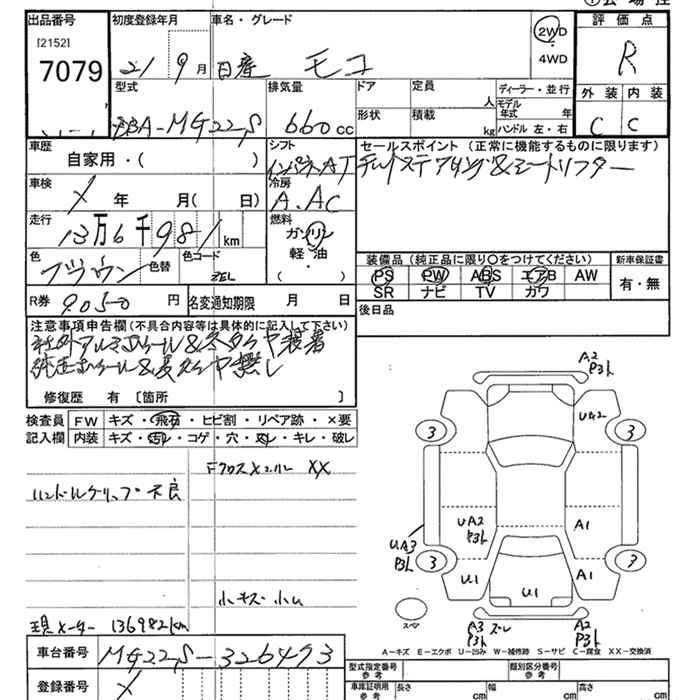 出品番号 初度登録年月 車名・グレード 評価点
[2152]
7079
21 9月 日産 モコ 2WD R
4WD
型式 排気量 ドア 定員 ディーラー・並行 外装 内装
人 モデル年式 年
DBA-MG22S 660cc 形状 積載 kg ハンドル 左・右 C C
車歴 シフト セールスポイント (正常に機能するものに限ります)
自家用・( ) インパネAT チルトステアリング&シートリフター
車検 冷房
年 月( 日) A.AC
走行 燃料
13万6千981km ガソリン
軽・油
( )
色 色替 色コード 装備品(純正品に限り○をつけてください) 新車保証書
ブラウン ZEL PS PW ABS エアB AW 有・無
SR ナビ TV カワ
R券 9050円 名変通知期限 月 日 後日品
注意事項申告欄(不具合内容等は具体的に記入して下さい)
社外アルミホイール&冬タイヤ装着
純正ホイール&夏タイヤ無し
修復歴 有〔箇所 〕
検査員 FW キズ・飛石・ヒビ割・リペア跡・×要
記入欄 内装 キズ・汚レ・コゲ・穴・スレ・キレ・破レ
Fクロスメンバー XX
ハンドルグリップ不良
小キズ・小凹
現メーター 136982km
A2
P3ト
U42
3 3
UA2
P3ト
A1
UA3
P3ト
3 3
U1 A1
U1
スペア
A3 ズレ A2
P3ト P3ト
A=キズ E=エクボ U=凹み W=補修跡 S=サビ C=腐食 XX=交換済
車台番号 MG22S-326493
登録番号
型式指定番号 参考 類別区分番号 参考
車庫証明用 参考 長さ cm 幅 cm 高さ cm